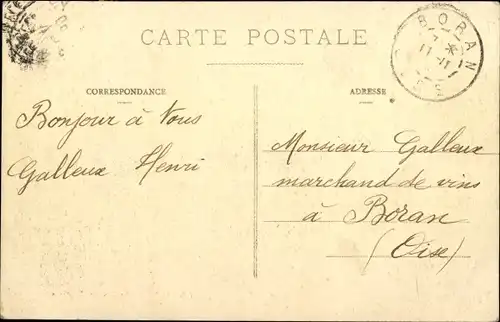 CARTE POSTALE
CORRESPONDANCE
Bonjour à Vous
Galleux Henri
ADRESSE
Monsieur Galleux
marchand de vins
à Boran
(Oise)
BORAN